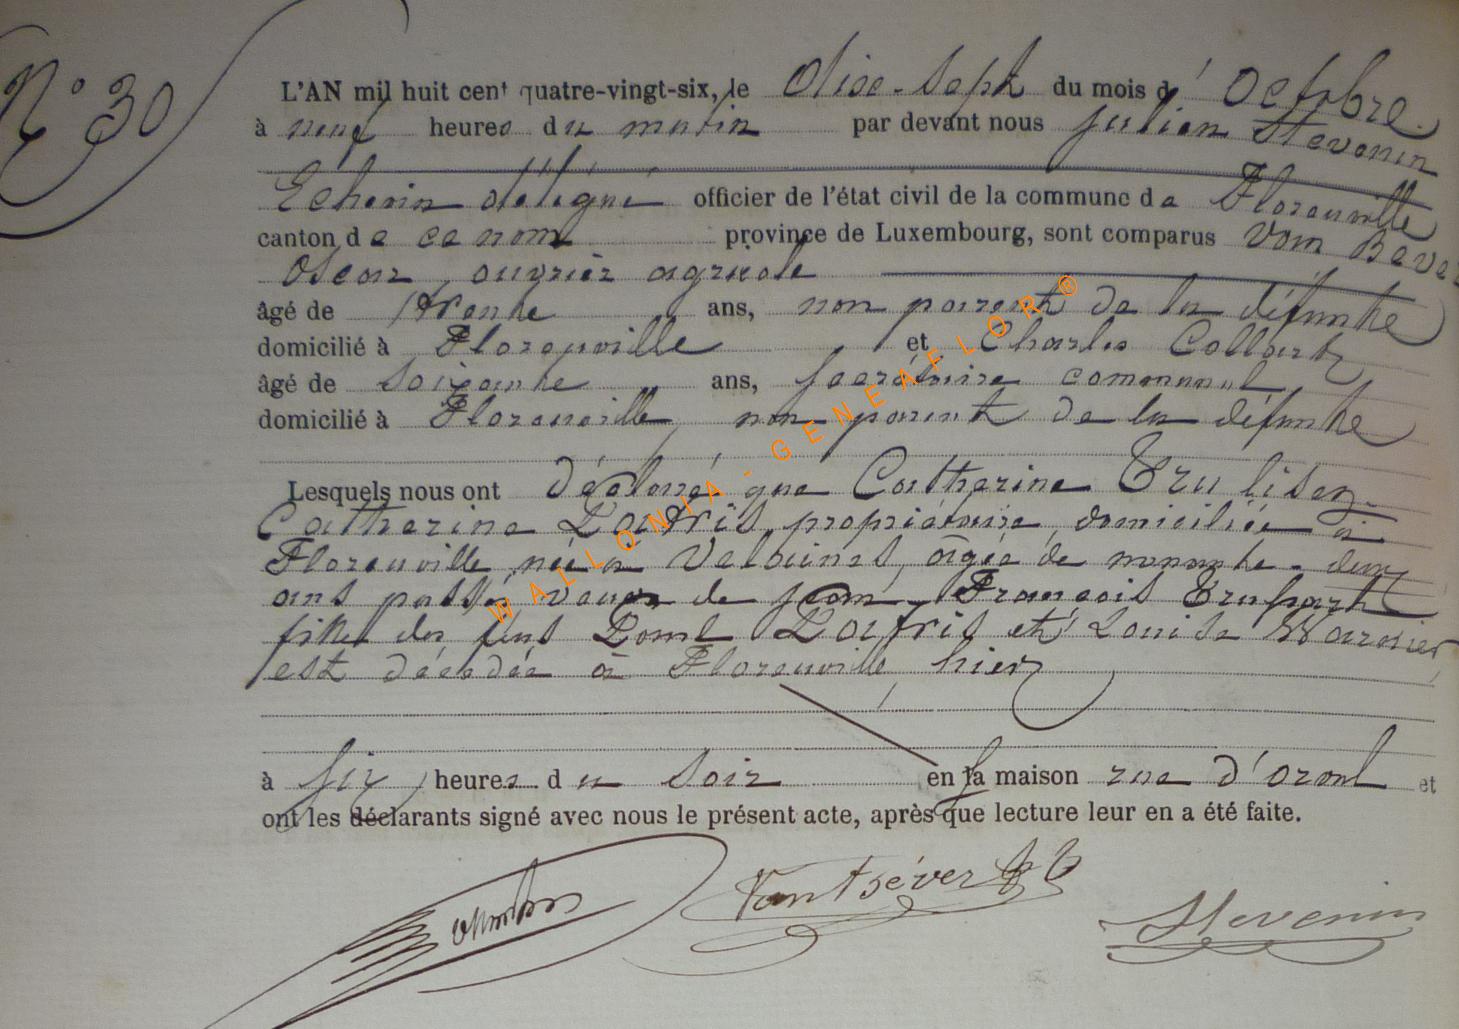 N° 30
L'AN mil huit cent quatre-vingt-six, le dixe-sept du mois d' Octobre
à neuf heures du matin par devant nous Julien Stevenin
Echevin délégué officier de l'état civil de la commune de Florenville
canton de ce nom province de Luxembourg, sont comparus
Oscar, ouvrier agricole
âgé de trente ans, non parent de la défunte
domicilié à Florenville et Charles Collart
âgé de soixante ans, secrétaire communal
domicilié à Florenville, non parent de la défunte
Lesquels nous ont déclaré que Catherine
Catherine Lafris, propriétaire, domiciliée à
Florenville née à agée de nonante-deux
ans passés, veuve de Jean-François
fille des feus Lafris et Louise
est décédée à Florenville, hier
à six heures du soir en sa maison rue d'orval et
ont les déclarants signé avec nous le présent acte, après que lecture leur en a été faite.
Stevenin
WALLONIA-GENEAFLOR®